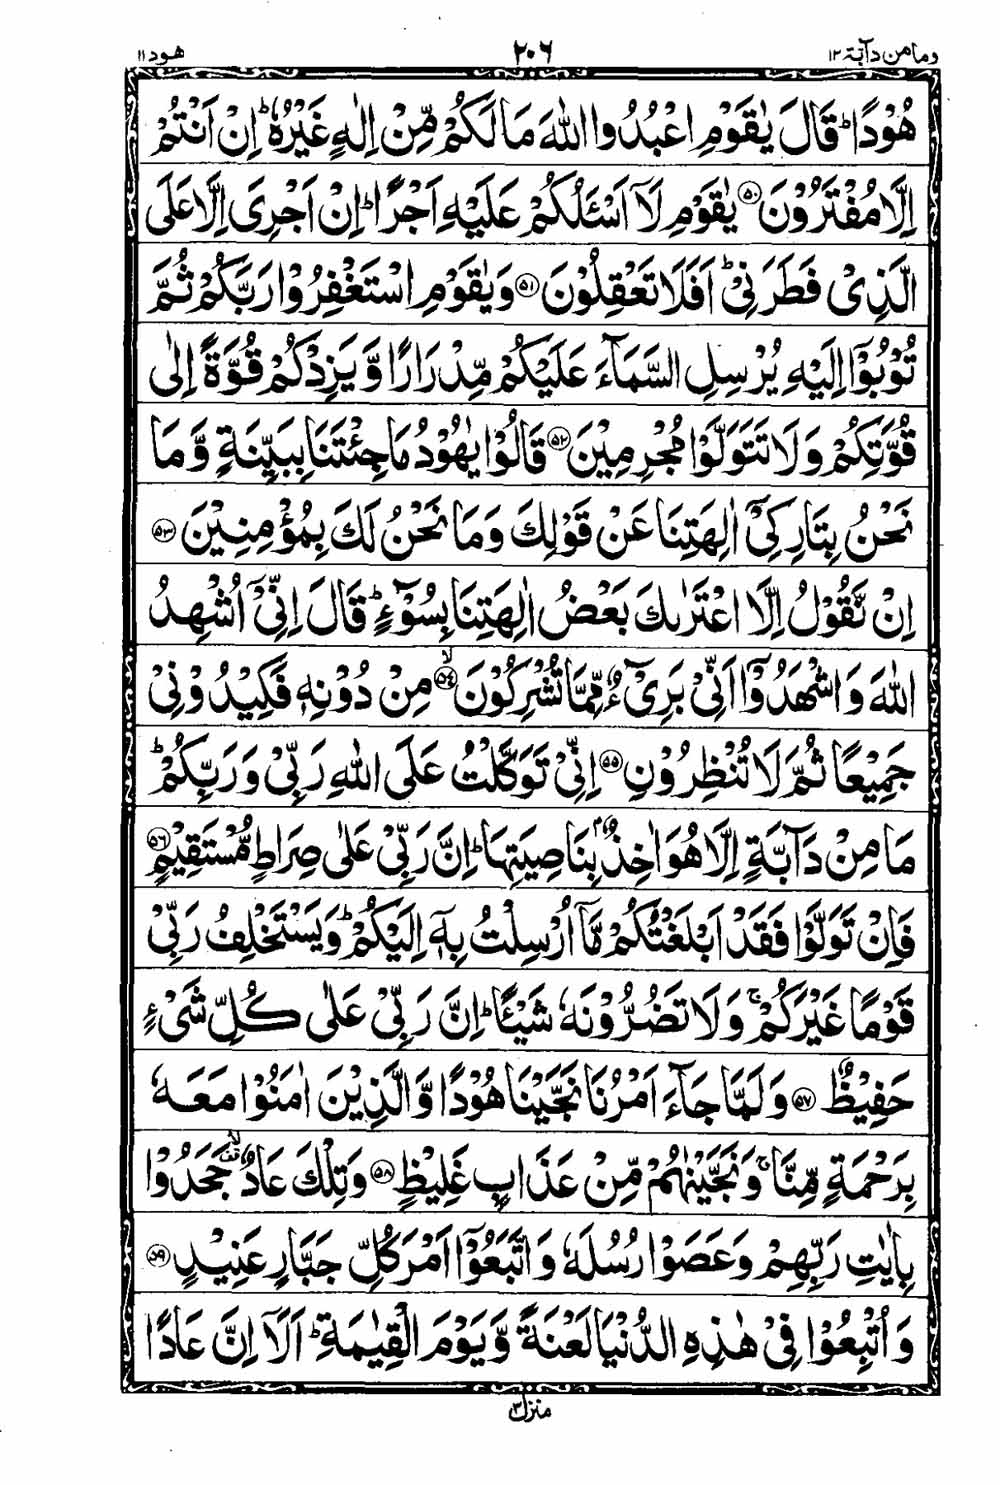 ومامن دآبة ١٢ ٢٠٦ هود ١١
هُوْدًا ؕ قَالَ یٰقَوْمِ اعْبُدُوا اللّٰهَ مَا لَكُمْ مِّنْ اِلٰهٍ غَیْرُهٗ ؕ اِنْ اَنْتُمْ
اِلَّا مُفْتَرُوْنَ ﴿۵۰﴾ یٰقَوْمِ لَاۤ اَسْـَٔلُكُمْ عَلَیْهِ اَجْرًا ؕ اِنْ اَجْرِیَ اِلَّا عَلَی
الَّذِیْ فَطَرَنِیْ ؕ اَفَلَا تَعْقِلُوْنَ ﴿۵۱﴾ وَیٰقَوْمِ اسْتَغْفِرُوْا رَبَّكُمْ ثُمَّ
تُوْبُوْۤا اِلَیْهِ یُرْسِلِ السَّمَآءَ عَلَیْكُمْ مِّدْرَارًا وَّیَزِدْكُمْ قُوَّةً اِلٰی
قُوَّتِكُمْ وَلَا تَتَوَلَّوْا مُجْرِمِیْنَ ﴿۵۲﴾ قَالُوْا یٰهُوْدُ مَا جِئْتَنَا بِبَیِّنَةٍ وَّمَا
نَحْنُ بِتَارِكِیْۤ اٰلِهَتِنَا عَنْ قَوْلِكَ وَمَا نَحْنُ لَكَ بِمُؤْمِنِیْنَ ﴿۵۳﴾
اِنْ نَّقُوْلُ اِلَّا اعْتَرٰىكَ بَعْضُ اٰلِهَتِنَا بِسُوْٓءٍ ؕ قَالَ اِنِّیْۤ اُشْهِدُ
اللّٰهَ وَاشْهَدُوْۤا اَنِّیْ بَرِیْٓءٌ مِّمَّا تُشْرِكُوْنَ ﴿۵۴﴾ۙ مِنْ دُوْنِهٖ فَكِیْدُوْنِیْ
جَمِیْعًا ثُمَّ لَا تُنْظِرُوْنِ ﴿۵۵﴾ اِنِّیْ تَوَكَّلْتُ عَلَی اللّٰهِ رَبِّیْ وَرَبِّكُمْ ؕ
مَا مِنْ دَآبَّةٍ اِلَّا هُوَ اٰخِذٌۢ بِنَاصِیَتِهَا ؕ اِنَّ رَبِّیْ عَلٰی صِرَاطٍ مُّسْتَقِیْمٍ ﴿۵۶﴾
فَاِنْ تَوَلَّوْا فَقَدْ اَبْلَغْتُكُمْ مَّاۤ اُرْسِلْتُ بِهٖۤ اِلَیْكُمْ ؕ وَیَسْتَخْلِفُ رَبِّیْ
قَوْمًا غَیْرَكُمْ ۚ وَلَا تَضُرُّوْنَهٗ شَیْـًٔا ؕ اِنَّ رَبِّیْ عَلٰی كُلِّ شَیْءٍ
حَفِیْظٌ ﴿۵۷﴾ وَلَمَّا جَآءَ اَمْرُنَا نَجَّیْنَا هُوْدًا وَّالَّذِیْنَ اٰمَنُوْا مَعَهٗ
بِرَحْمَةٍ مِّنَّا ۚ وَنَجَّیْنٰهُمْ مِّنْ عَذَابٍ غَلِیْظٍ ﴿۵۸﴾ وَتِلْكَ عَادٌ جَحَدُوْا
بِاٰیٰتِ رَبِّهِمْ وَعَصَوْا رُسُلَهٗ وَاتَّبَعُوْۤا اَمْرَ كُلِّ جَبَّارٍ عَنِیْدٍ ﴿۵۹﴾
وَاُتْبِعُوْا فِیْ هٰذِهِ الدُّنْیَا لَعْنَةً وَّیَوْمَ الْقِیٰمَةِ ؕ اَلَاۤ اِنَّ عَادًا
منزل ٣